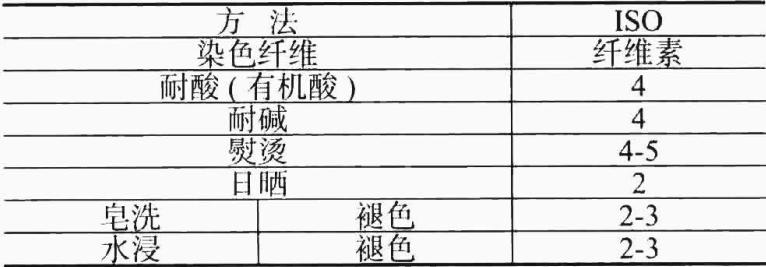 方 法 ISO
染色纤维 纤维素
耐酸(有机酸) 4
耐碱 4
熨烫 4-5
日晒 2
皂洗 褪色 2-3
水浸 褪色 2-3